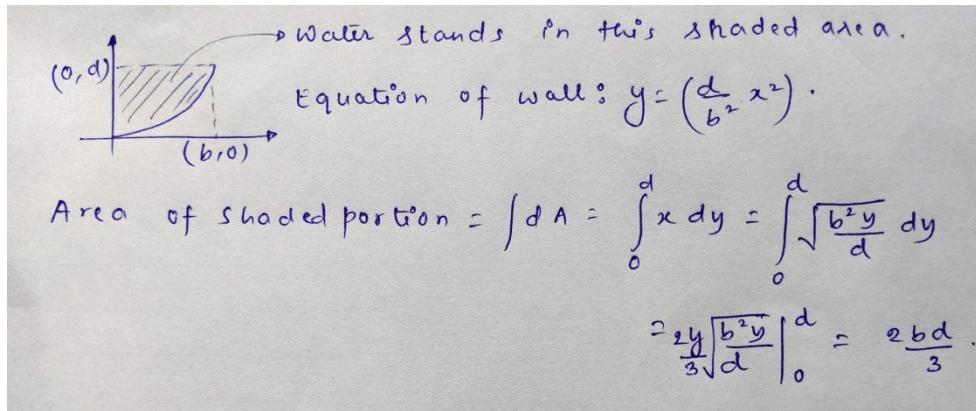 water stands in this shaded area.
(0,d)
Equation of wall: y = (d/b² x²).
(b,0)
Area of shaded portion = ∫dA = ∫₀ᵈ x dy = ∫₀ᵈ √(b²y/d) dy
= 2y/3 √(b²y/d) |₀ᵈ = 2bd/3.